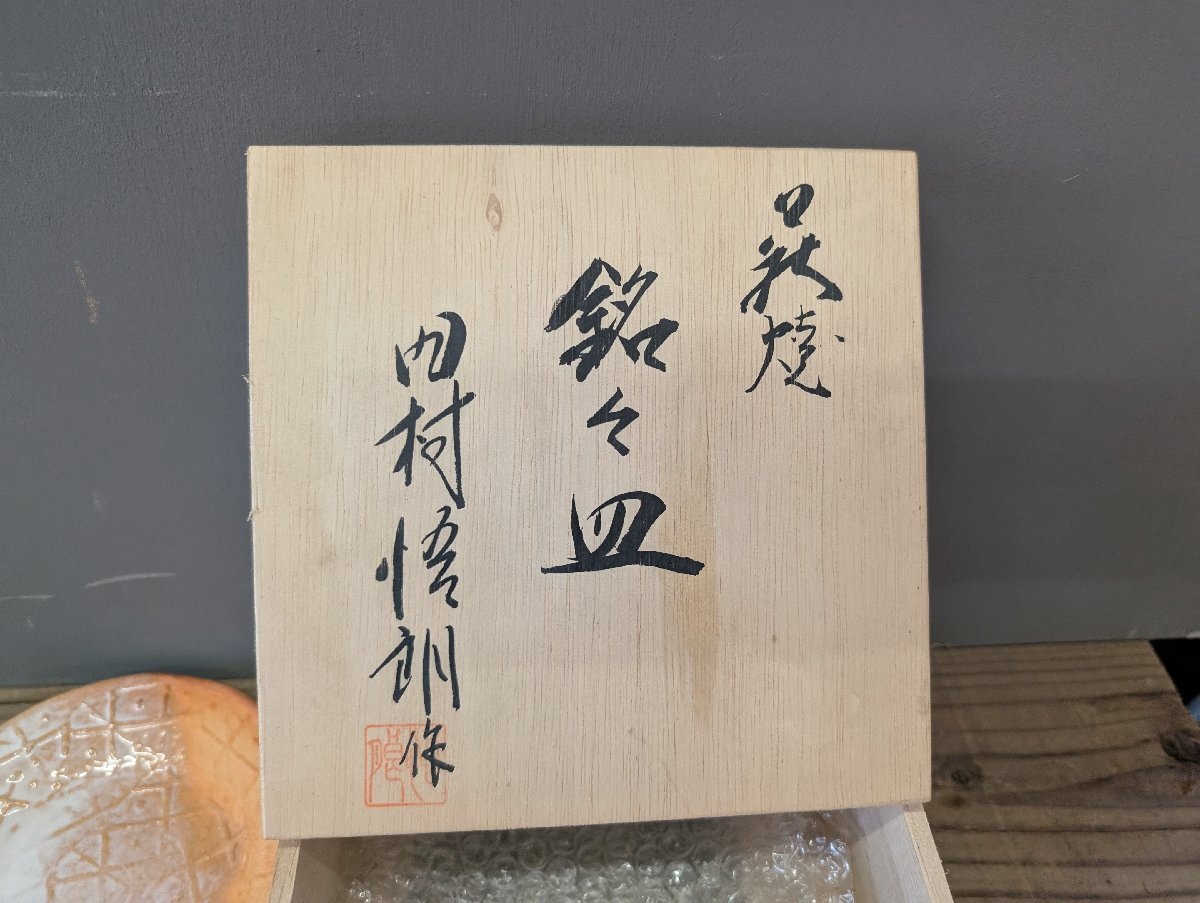 萩焼
銘々皿
田村悟朗作